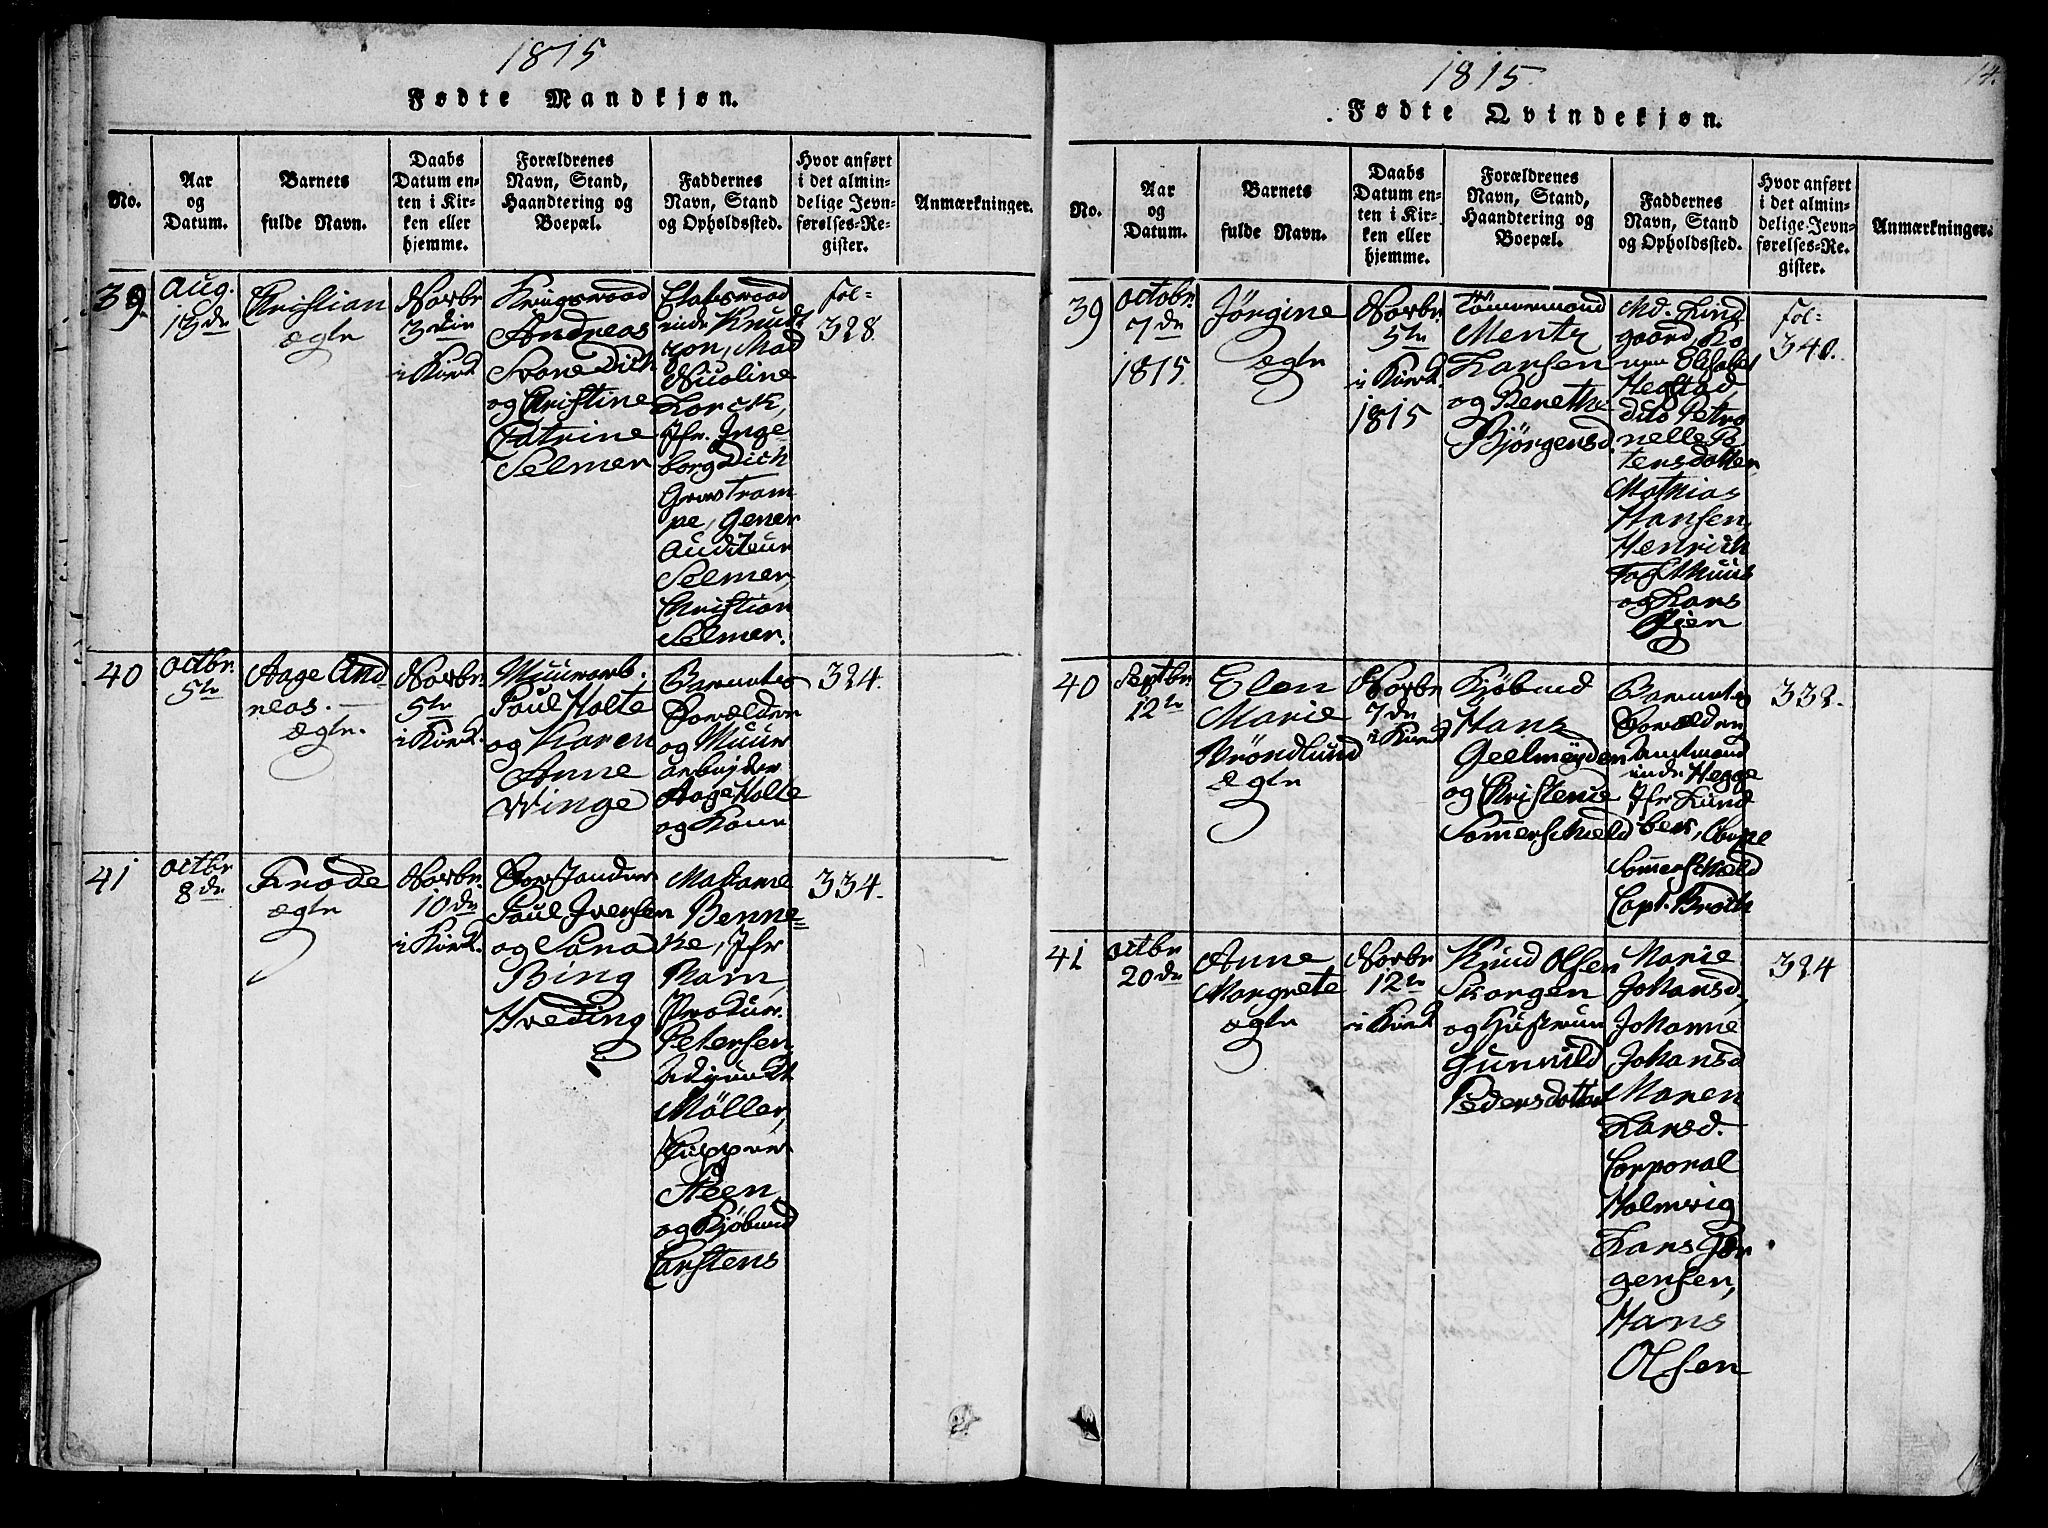 1815
Fødte Mandkjøn.
No.
Aar
og
Datum.
Barnets
fulde Navn.
Daabs
Datum en-
ten i Kir-
ken eller
hjemme.
Forældrenes
Navn, Stand,
Haandtering og
Boepæl.
Faddernes
Navn, Stand
og Opholdssted.
Hvor anført
i det almin-
delige Jevn-
førelses-Re-
gister.
Anmærkninger.
39
Aug.
13de
Christian
ægte
Novbr
3die
i Kirk
Krigsraad
Andreas
Svane Dick
og Christine
Catrine
Selmer
Etatsraad
inde Knudt
zon, Mad
Nicoline
Lorck,
Jfr. Inge-
borg Dich
Grev Tram
pe, Gener
Auditeur
Selmer,
Christian
Selmer.
fol-
328.
40
Octbr.
5te
Aage And
reas.
ægte.
Novbr.
5te
i Kirk.
Muurarb.
Paul Holte
og Karen
Anne
Winge
Barnets
Forældre
og Muur
arbejder
Aage Holte
og Kone
324.
41
Octbr
8de
Frode
ægte
Novbr.
10de
i Kirk.
Forstander
Paul Iversen
og Sara
Bing
Hveding
Madame
Benne-
ke, Jfr
Ram,
Procur.
Petersen,
Adjunkt
Möller,
Skipper
Steen,
og Kjöbmd
Carstens
334.
1815.
14.
Fødte Qvindekjøn.
No.
Aar
og
Datum.
Barnets
fulde Navn.
Daabs
Datum en-
ten i Kir-
ken eller
hjemme.
Forældrenes
Navn, Stand,
Haandtering og
Boepæl.
Faddernes
Navn, Stand
og Opholdssted.
Hvor anført
i det almin-
delige Jevn-
førelses-Re-
gister.
Anmærkninger.
39
Octobr.
7de
1815.
Jörgine
ægte
Novbr.
5te
i Kirk.
1815
Tömermand
Mentz
Larsen
og Berethe
Björgensd.
Md. Lind
gaard, Ko
nen Elisabet
Hegstad
dito Petro
nelle Pe
tersdotter,
Mathias
Hansen
Henrich
Fasthuus
og Lars
Öjen
fol-
340.
40
Septbr.
12te
Elen
Marie
Bröndlund
ægte
Novbr
7de
i Kirk
Kjöbmd
Hans
Geelmeyden
og Christence
Sommerschield
Barnets
Forældre
Amtmand
inde Hegge
Jfr Lund
Sommerschield
Capt. Broch
332.
41
Octbr
20de
Anne
Margrete
ægte
Novbr
12te
i Kirk
Knud Olsen
Skorgen
og Hustrue
Gunnild
Pedersdotter
Marie
Johansd,
Johanne
Johansd
Maren
Larsd.
Corporal
Holmvig
Lars Jör
gensen,
Hans
Olsen
324